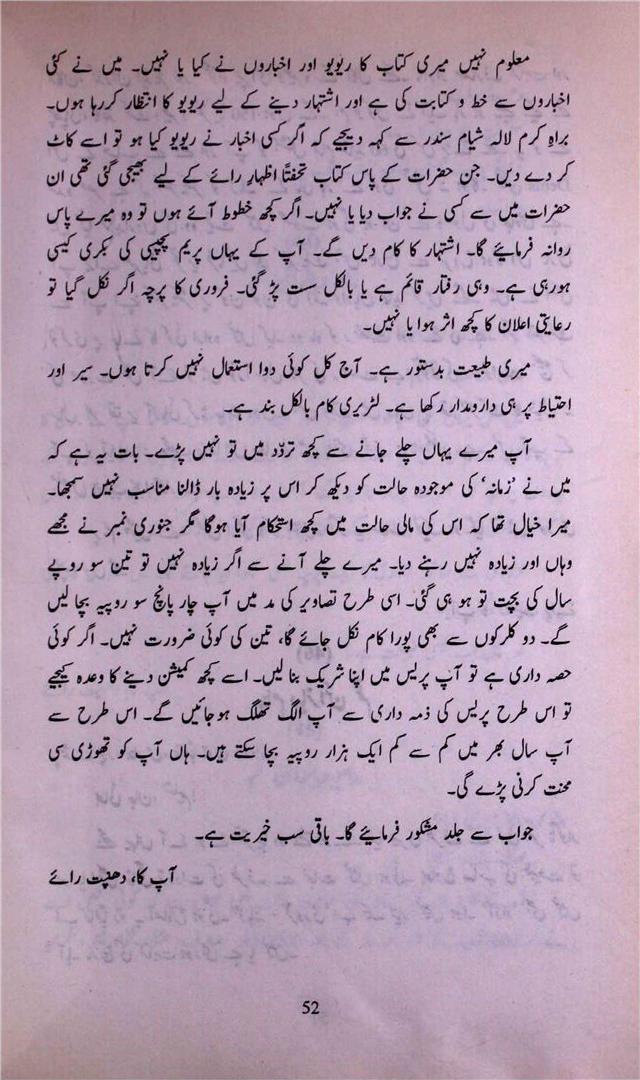 معلوم نہیں میری کتاب کا ریویو اور اخباروں نے کیا یا نہیں۔ میں نے کئی
اخباروں سے خط و کتابت کی ہے اور اشتہار دینے کے لیے ریویو کا انتظار کررہا ہوں۔
براہِ کرم لالہ شیام سندر سے کہہ دیجیے کہ اگر کسی اخبار نے ریویو کیا ہو تو اسے کاٹ
کر دے دیں۔ جن حضرات کے پاس کتاب تحفتاً اظہارِ رائے کے لیے بھیجی گئی تھی ان
حضرات میں سے کسی نے جواب دیا یا نہیں۔ اگر کچھ خطوط آئے ہوں تو وہ میرے پاس
روانہ فرمائیے گا۔ اشتہار کا کام دیں گے۔ آپ کے یہاں پریم پچیسی کی بکری کیسی
ہورہی ہے۔ وہی رفتار قائم ہے یا بالکل سست پڑ گئی۔ فروری کا پرچہ اگر نکل گیا تو
رعایتی اعلان کا کچھ اثر ہوا یا نہیں۔
میری طبیعت بدستور ہے۔ آج کل کوئی دوا استعمال نہیں کرتا ہوں۔ سیر اور
احتیاط پر ہی دارومدار رکھا ہے۔ لٹریری کام بالکل بند ہے۔
آپ میرے یہاں چلے جانے سے کچھ تردّد میں تو نہیں پڑے۔ بات یہ ہے کہ
میں نے ’زمانہ‘ کی موجودہ حالت کو دیکھ کر اس پر زیادہ بار ڈالنا مناسب نہیں سمجھا۔
میرا خیال تھا کہ اس کی مالی حالت میں کچھ استحکام آیا ہوگا مگر جنوری نمبر نے مجھے
وہاں اور زیادہ نہیں رہنے دیا۔ میرے چلے آنے سے اگر زیادہ نہیں تو تین سو روپے
سال کی بچت تو ہو ہی گئی۔ اسی طرح تصاویر کی مد میں آپ چار پانچ سو روپیہ بچا لیں
گے۔ دو کلرکوں سے بھی پورا کام نکل جائے گا، تین کی کوئی ضرورت نہیں۔ اگر کوئی
حصہ داری ہے تو آپ پریس میں اپنا شریک بنا لیں۔ اسے کچھ کمیشن دینے کا وعدہ کیجیے
تو اس طرح پریس کی ذمہ داری سے آپ الگ تھلگ ہوجائیں گے۔ اس طرح سے
آپ سال بھر میں کم سے کم ایک ہزار روپیہ بچا سکتے ہیں۔ ہاں آپ کو تھوڑی سی
محنت کرنی پڑے گی۔
جواب سے جلد مشکور فرمائیے گا۔ باقی سب خیریت ہے۔
آپ کا، دھنپت رائے
52